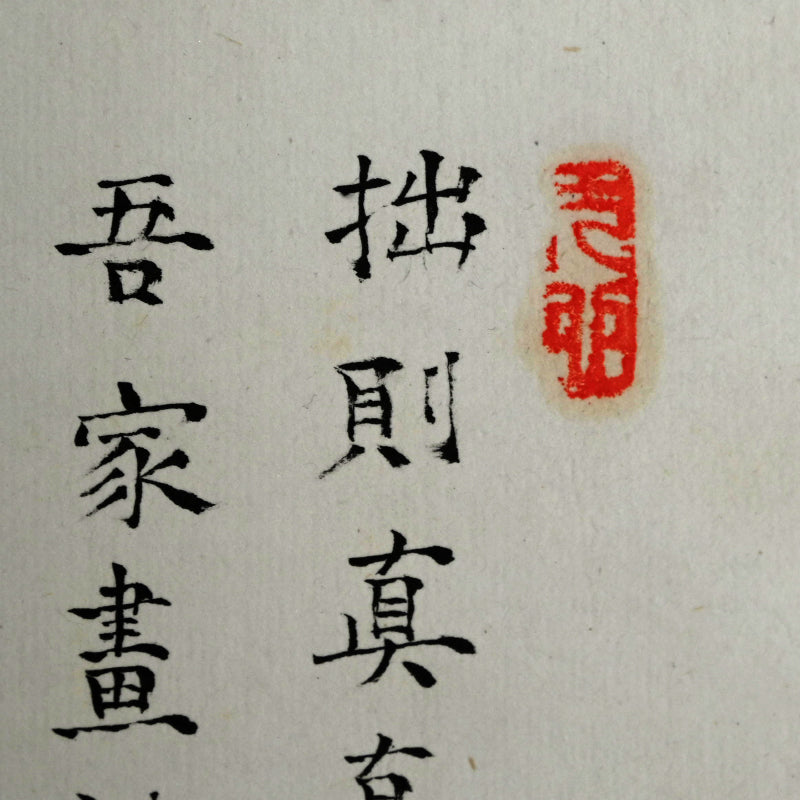 拙則真真
吾家畫